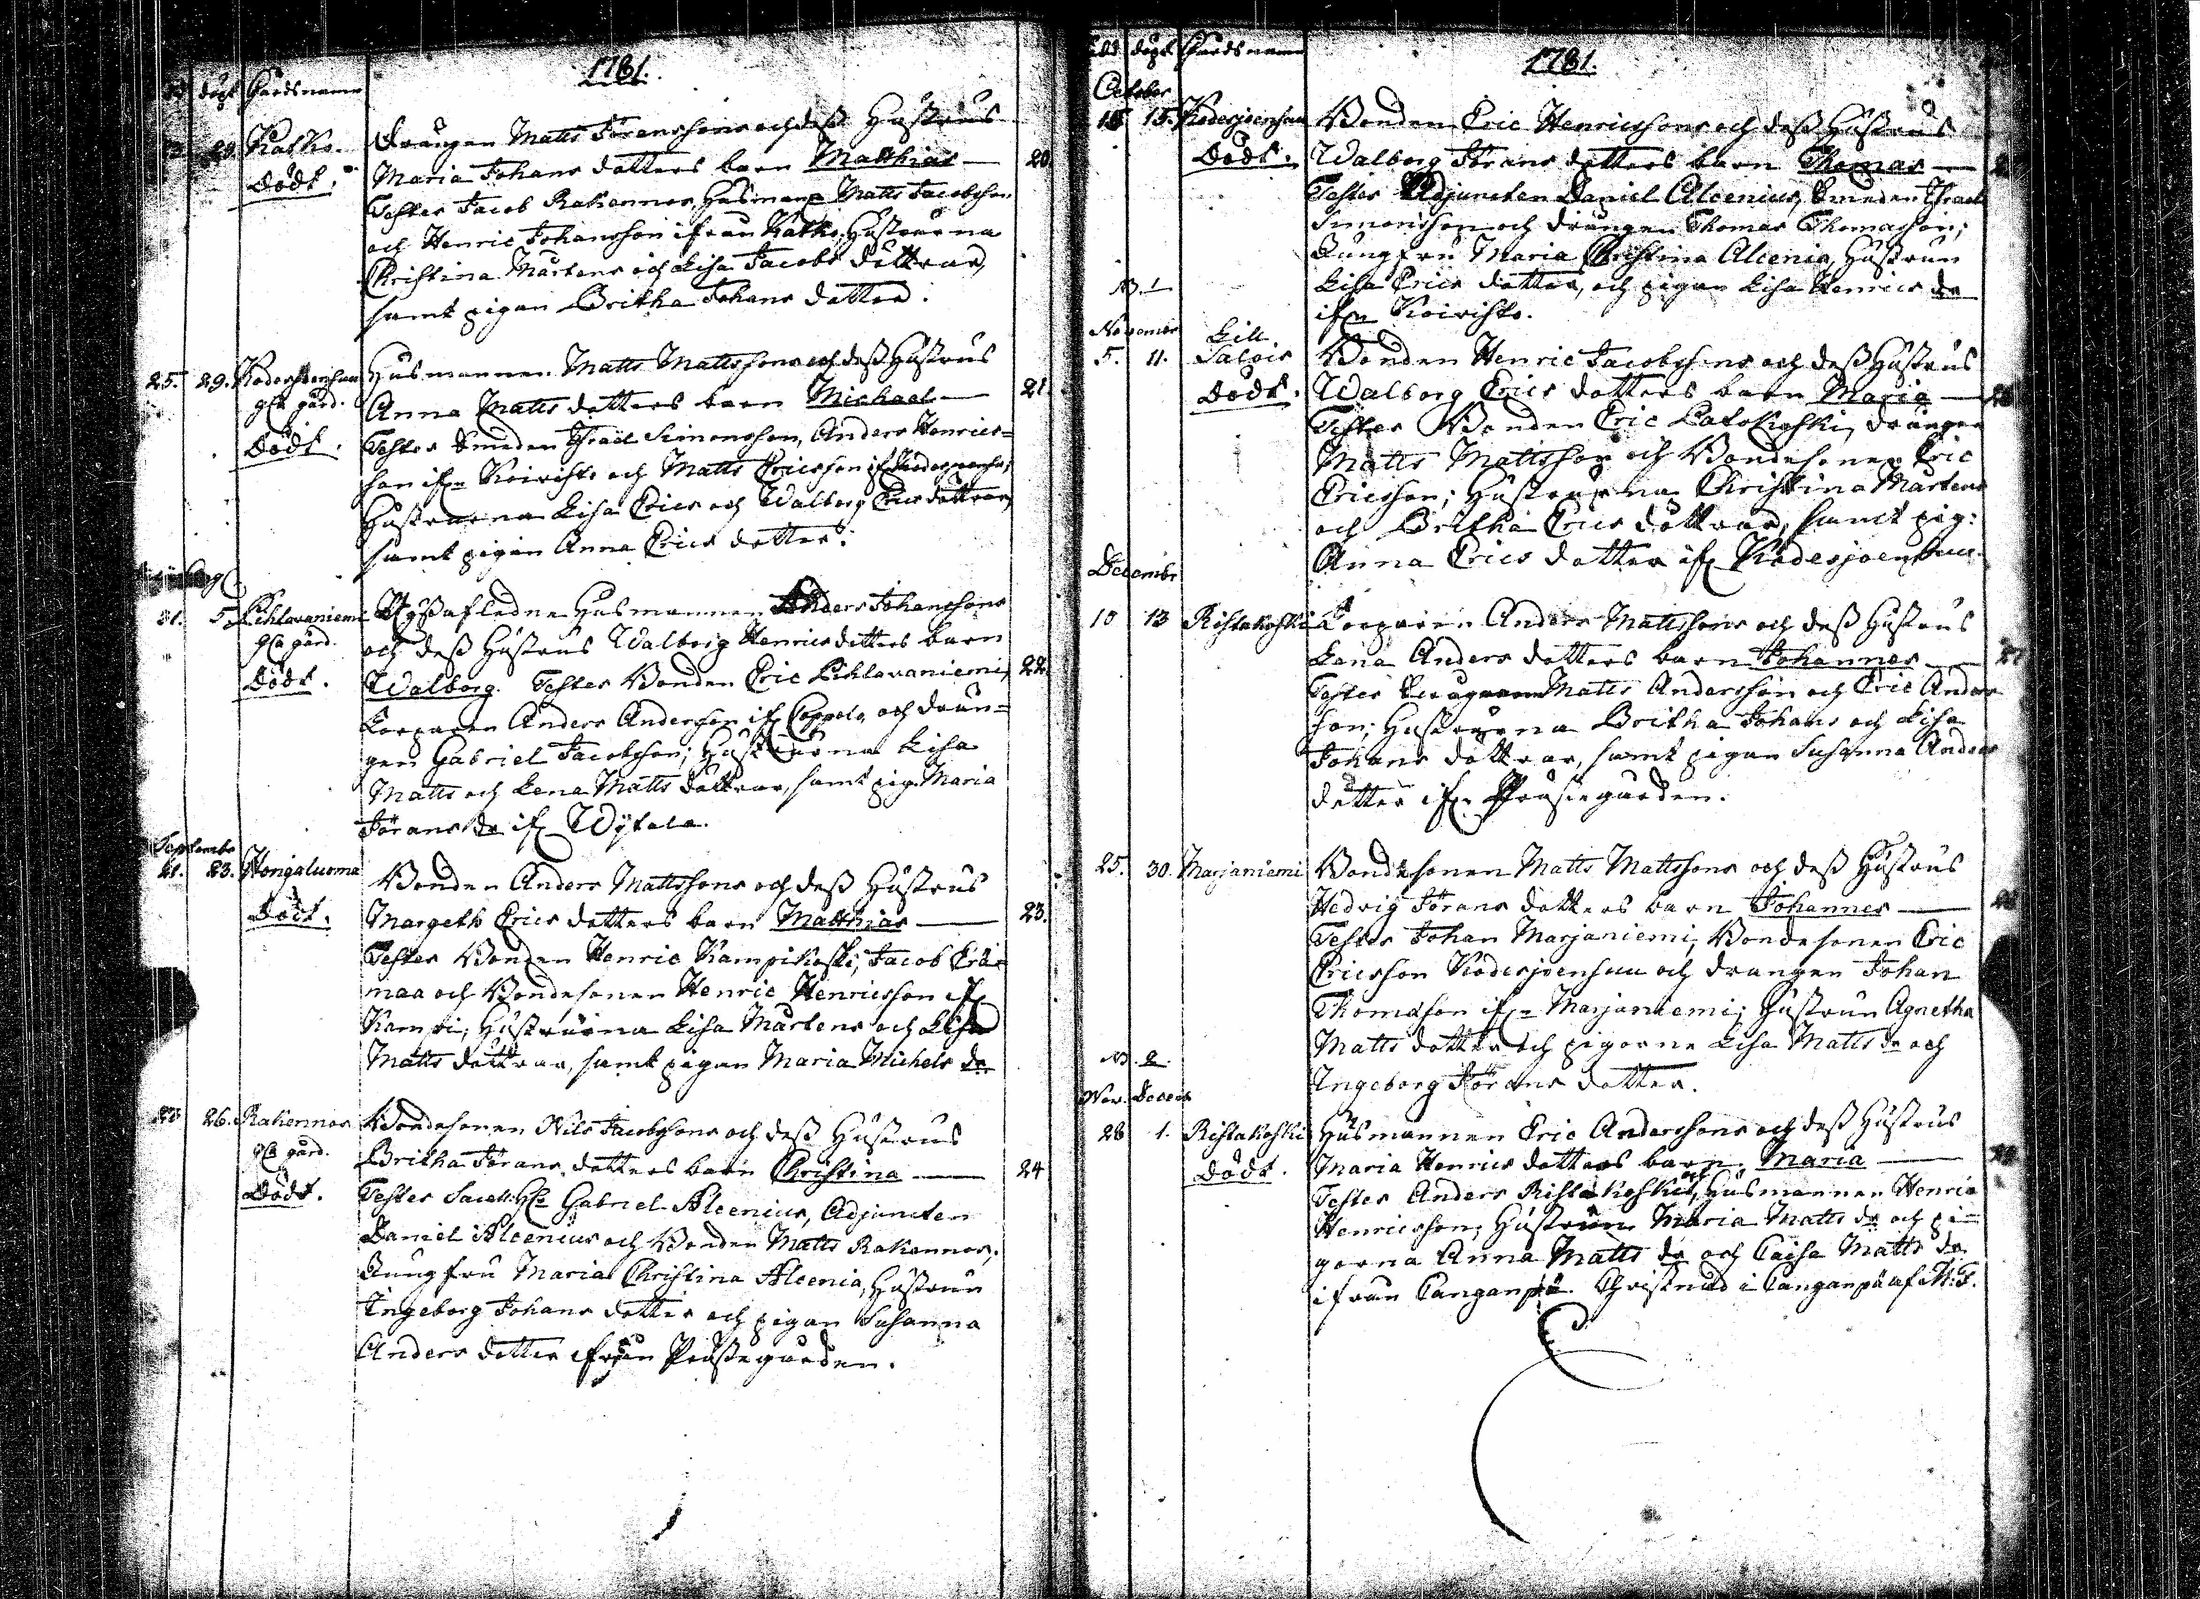 1781.
döpt Gårdsnamn
28. Katko. Drängen Matts Göranssons och dess Hustrus
Dödt. Maria Johans dotters barn Matthias — 20.
Testes Jacob Rahennos, Husman Matts Jacobsson
och Henric Johansson ifrån Katko, Hustrurna
Christina Mårtens och Lisa Jacobs döttrar,
samt pigan Britha Johans dotter.
25. 29. Kodesjoensuu Husmannen Matts Mattssons och dess Hustrus
gla gård. Anna Matts dotters barn Michael — 21
Dödt. Testes Smeden Israel Simonsson, Anders Henrics-
son ifrn Koivisto och Matts Ericsson if Kodesjoensu;
Hustrurna Lisa Erics och Walborg Erics döttrar,
samt pigan Anna Erics dotter.
31. 5. Pihlavaniemi Aflidne Husmannen Anders Johanssons
gla gård. och dess Hustrus Walborg Henrics dotters barn
Dödt. Walborg. Testes Bonden Eric Pihlavaniemi, 22.
Torparen Anders Andersson if Coppelo, och drän-
gen Gabriel Jacobsson; Hustrurna Lisa
Matts och Lena Matts döttrar, samt pig. Maria
Görans dr if Wytala.
September
21. 23. Hongaluoma Bonden Anders Mattssons och dess Hustrus
Dödt. Margeth Erics dotters barn Matthias — 23.
Testes Bonden Henric Kampikoski, Jacob Erä-
maa och Bondesonen Henric Henricsson if
Kampi, Hustrurna Lisa Mårtens och Lisa
Matts döttrar, samt pigan Maria Michels dr
26. Rahennos Bondesonen Nils Jacobssons och dess Hustrus
gla gård. Britha Görans dotters barn Christina — 24
Dödt. Testes Sacell. Gabriel Alcenius, Adjuncten
Daniel Alcenius och Bonden Matts Rahennos,
Jungfru Maria Christina Alcenia, Hustrun
Ingeborg Johans dotter och pigan Susanna
Anders dotter ifrån Prästegården.
1781.
döpt Gårdsnamn
October
15. Kodesjoensuu Bonden Eric Henricssons och dess Hustrus
Dödt. Walborg Görans dotters barn Thomas —
Testes Adjuncten Daniel Alcenius, Smeden Israel
Simonsson och drängen Thomas Thomasson;
Jungfru Maria Christina Alcenia, Hustrun
N. 1 Lisa Erics dotter, och pigan Lisa Henrics dr
ifrn Koivisto.
November
5. 11. Lill Salois Bonden Henric Jacobssons och dess Hustrus
Dödt. Walborg Erics dotters barn Maria —
Testes Bonden Eric Latokoski, drängen
Matts Mattsson och Bondesonen Eric
Ericsson; Hustrurna Christina Mårtens
och Britha Erics döttrar, samt pig:
Anna Erics dotter if Kodesjoensuu.
December
10 13 Ristakoski Torparen Anders Mattssons och dess Hustrus
Lena Anders dotters barn Johannes — 27
Testes Matts Andersson och Eric Anders
son; Hustrurna Britha Johans och Lisa
Johans döttrar, samt pigan Susanna Anders
dotter ifrn Prästegården.
25. 30. Marjaniemi Bondesonen Matts Mattssons och dess Hustrus
Hedvig Görans dotters barn Johannes —
Testes Johan Marjaniemi, Bondesonen Eric
Ericsson Kodesjoensuu och drängen Johan
Thomasson ifrn Marjaniemi; Hustrun Agnetha
Matts dotter och pigorne Lisa Matts dr och
N. 2. Ingeborg Görans dotter.
Nov. Decem
28 1. Ristakoski Husmannen Eric Anderssons och dess Hustrus
Dödt. Maria Henrics dotters barn Maria —
Testes Anders Ristakoski, och Husmannen Henric
Henricsson; Hustrun Maria Matts dr och pi-
gorna Anna Matts dr och Caisa Matts dr
ifrån Canganpä. Christnad i Canganpä af